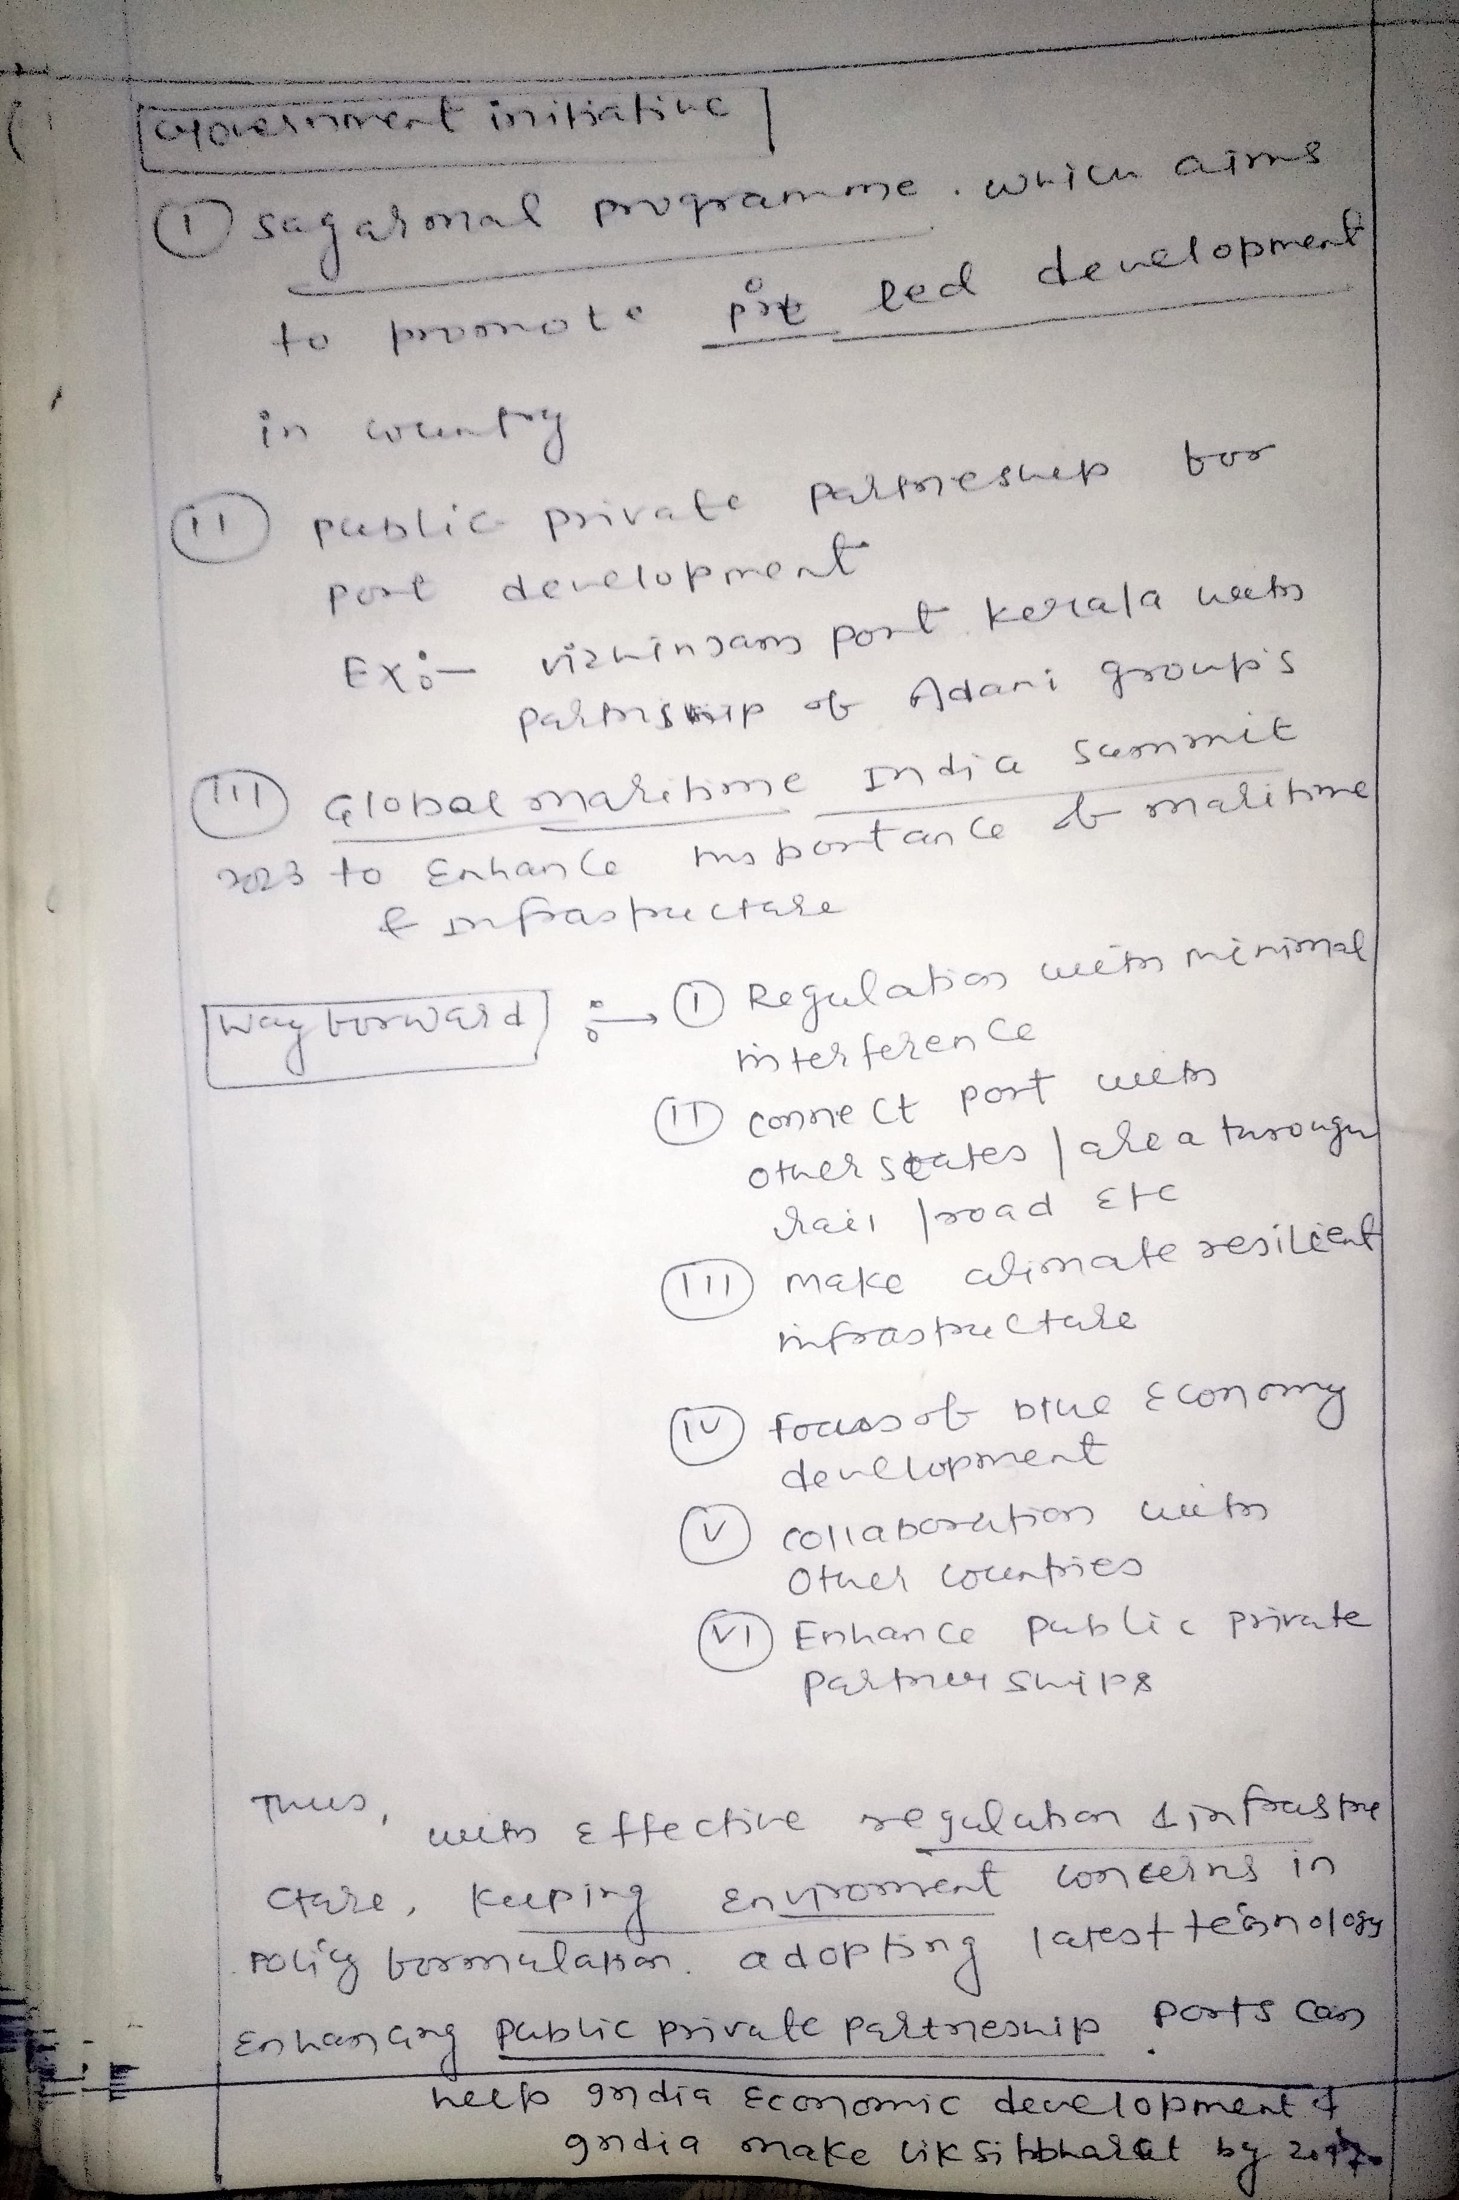 Government initiative
(I) sagarmal programme. which aims
to promote port led development
in country
(II) public private partneship for
port development
Ex:- vizhinjam port kerala with
partnship of Adani group's
(III) Global maritime India summit
2023 to Enhance importance of maritime
& infrastructure
Way forward :→ (I) Regulation with minimal
interference
(II) connect port with
other states / area through
rail / road Etc
(III) make climate resilient
infrastructure
(IV) focus of blue Economy
development
(V) collaboration with
other countries
(VI) Enhance public private
partnerships
Thus, with effective regulation & infrastru
cture, keeping enviroment concerns in
policy formulation. adopting latest technology
Enhancing public private partneship. Ports can
help India Economic development &
India make viksitbharat by 2047.